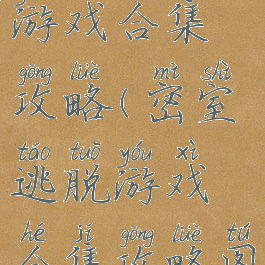 游戏合集
gōng lüè mì shì
攻略(密室
táo tuō yóu xì
逃脱游戏
hé jí gōng lüè tú
合集攻略图